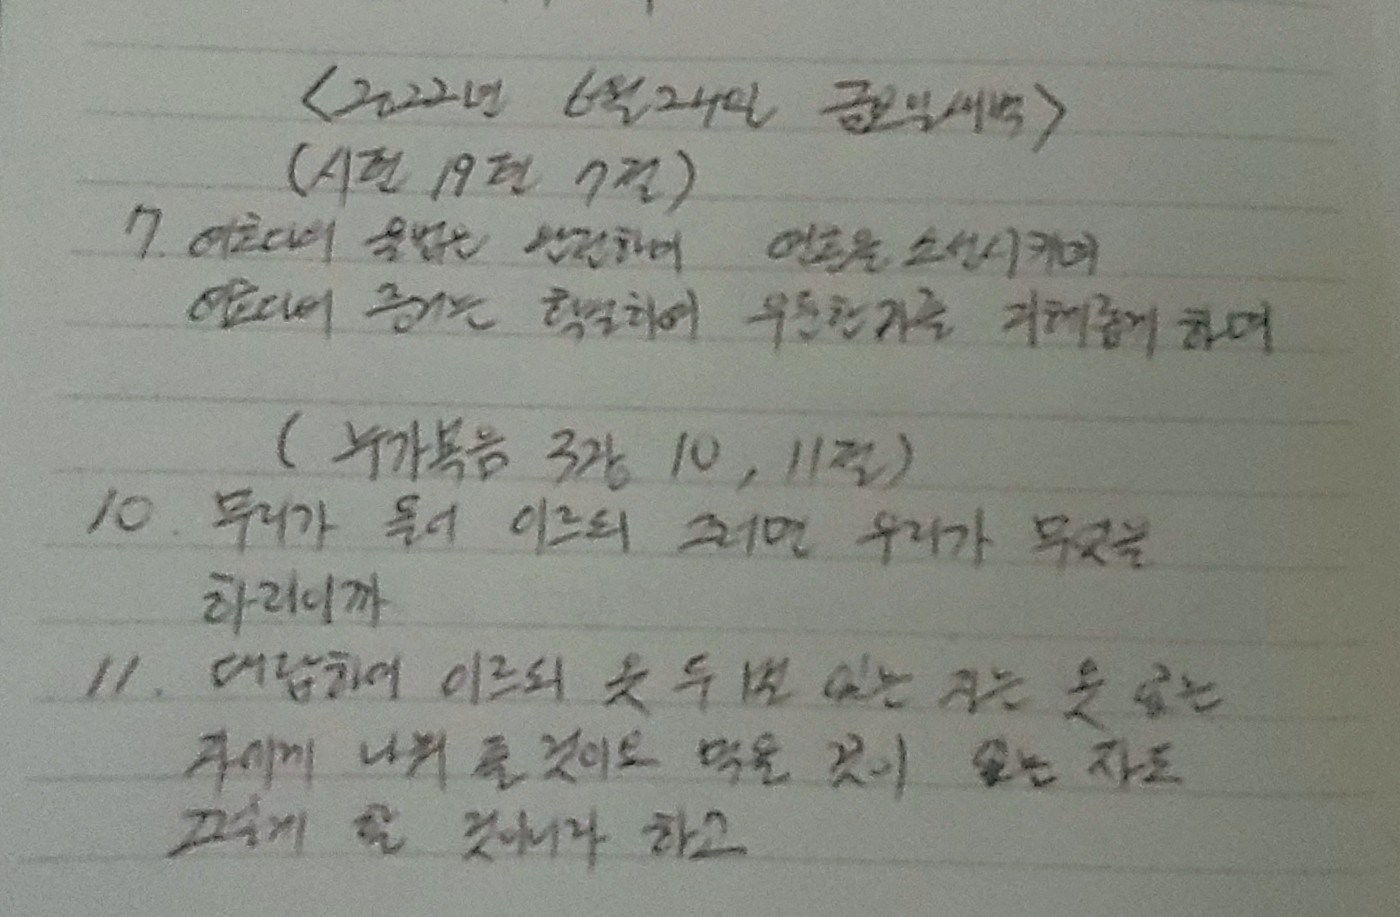 <2022년 6월 24일 금요일새벽>
(시편 19편 7절)
7. 여호와의 율법은 완전하여 영혼을 소성시키며
여호와의 증거는 확실하여 우둔한 자를 지혜롭게 하며
(누가복음 3장 10, 11절)
10. 무리가 물어 이르되 그러면 우리가 무엇을
하리이까
11. 대답하여 이르되 옷 두 벌 있는 자는 옷 없는
자에게 나눠 줄 것이요 먹을 것이 있는 자도
그렇게 할 것이니라 하고